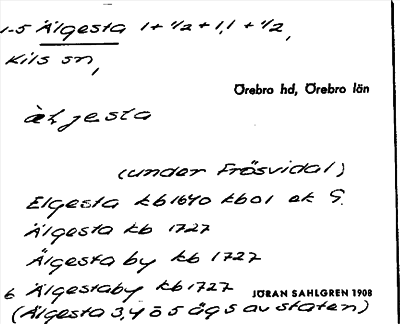 1-5 Älgesta 1 + 1/2 + 1,1 + 1/2,
Kils sn,
Örebro hd, Örebro län
jesta
(under Frösvidal)
Elgesta kb 1640 kb 01 ek G.
Älgesta kb 1727
Älgesta by kb 1727
6 Älgestaby kb 1727
JÖRAN SAHLGREN 1908
(Älgesta 3,4 o 5 äg s av staten)